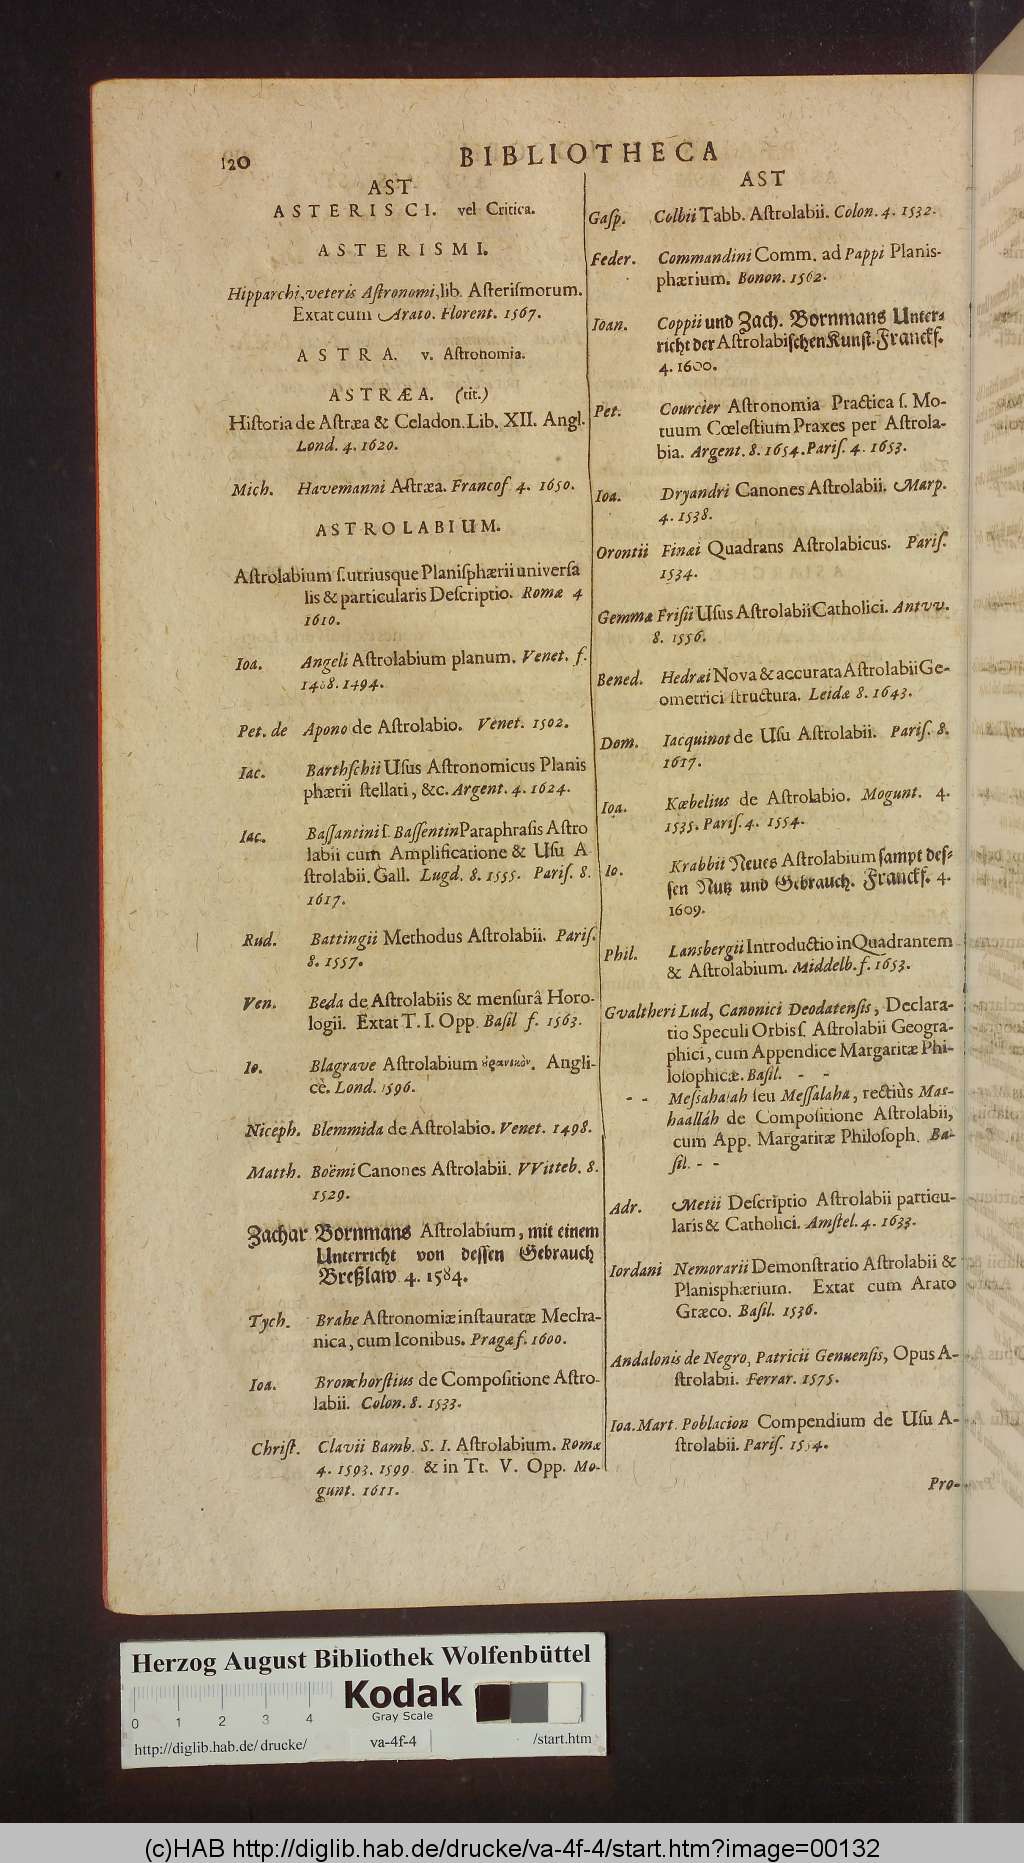 120
BIBLIOTHECA
AST
ASTERISCI. vel Critica.
ASTERISMI.
Hipparchi, veteris Aſtronomi, lib. Aſteriſmorum.
Extat cum Arato. Florent. 1567.
ASTRA. v. Aſtronomia.
ASTRÆA. (tit.)
Hiſtoria de Aſtræa & Celadon. Lib. XII. Angl.
Lond. 4. 1620.
Mich. Havemanni Aſtræa. Francof. 4. 1650.
ASTROLABIUM.
Aſtrolabium ſ. utriusque Planiſphærii univerſa
lis & particularis Deſcriptio. Romæ 4
1610.
Ioa. Angeli Aſtrolabium planum. Venet. f.
1488. 1494.
Pet. de Apono de Aſtrolabio. Venet. 1502.
Iac. Barthſchii Uſus Aſtronomicus Planis
phærii ſtellati, &c. Argent. 4. 1624.
Iac. Baſſantini ſ. Baſſentin Paraphraſis Aſtro
labii cum Amplificatione & Uſu A
ſtrolabii. Gall. Lugd. 8. 1555. Pariſ. 8.
1617.
Rud. Battingii Methodus Aſtrolabii. Pariſ.
8. 1557.
Ven. Beda de Aſtrolabiis & menſurâ Horo-
logii. Extat T. I. Opp. Baſil f. 1563.
Io. Blagrave Aſtrolabium ȣρανικὸν. Angli-
cè. Lond. 1596.
Niceph. Blemmida de Aſtrolabio. Venet. 1498.
Matth. Boëmi Canones Aſtrolabii. VVitteb. 8.
1529.
Zachar Bornmans Aſtrolabium, mit einem
Unterricht von deſſen Gebrauch
Breßlaw 4. 1584.
Tych. Brahe Aſtronomiæ inſtauratæ Mecha-
nica, cum Iconibus. Pragæ f. 1600.
Ioa. Bronchorſtius de Compoſitione Aſtro-
labii. Colon. 8. 1533.
Chriſt. Clavii Bamb. S. I. Aſtrolabium. Romæ
4. 1593. 1599. & in Tt. V. Opp. Mo-
gunt. 1611.
AST
Gaſp. Colbii Tabb. Aſtrolabii. Colon. 4. 1532.
Feder. Commandini Comm. ad Pappi Planis-
phærium. Bonon. 1562.
Ioan. Coppii und Zach. Bornmans Unter-
richt der Aſtrolabiſchen Kunſt. Franckf.
4. 1600.
Pet. Courcier Aſtronomia Practica ſ. Mo-
tuum Cœleſtium Praxes per Aſtrola-
bia. Argent. 8. 1654. Pariſ. 4. 1653.
Ioa. Dryandri Canones Aſtrolabii. Marp.
4. 1538.
Orontii Finæi Quadrans Aſtrolabicus. Pariſ.
1534.
Gemmæ Friſii Uſus Aſtrolabii Catholici. Antvv.
8. 1556.
Bened. Hedræi Nova & accurata Aſtrolabii Ge-
ometrici ſtructura. Leidæ 8. 1643.
Dom. Iacquinot de Uſu Aſtrolabii. Pariſ. 8.
1617.
Ioa. Kœbelius de Aſtrolabio. Mogunt. 4.
1535. Pariſ. 4. 1554.
Io. Krabbii Neues Aſtrolabium ſampt deſ-
ſen Nutz und Gebrauch. Franckf. 4.
1609.
Phil. Lansbergii Introductio in Quadrantem
& Aſtrolabium. Middelb. f. 1653.
Gvaltheri Lud, Canonici Deodatenſis, Declara-
tio Speculi Orbis ſ. Aſtrolabii Geogra-
phici, cum Appendice Margaritæ Phi-
loſophicæ. Baſil. - -
- - Meſſahalah ſeu Meſſalaha, rectiùs Mas-
haalláh de Compoſitione Aſtrolabii,
cum App. Margaritæ Philoſoph. Ba-
ſil. - -
Adr. Metii Deſcriptio Aſtrolabii particu-
laris & Catholici. Amſtel. 4. 1633.
Iordani Nemorarii Demonſtratio Aſtrolabii &
Planisphærium. Extat cum Arato
Græco. Baſil. 1536.
Andalonis de Negro, Patricii Genuenſis, Opus A-
ſtrolabii. Ferrar. 1575.
Ioa. Mart. Poblacion Compendium de Uſu A-
ſtrolabii. Pariſ. 1554.
Pro-
Herzog August Bibliothek Wolfenbüttel
Kodak
Gray Scale
0 1 2 3 4
http://diglib.hab.de/drucke/ va-4f-4 /start.htm
(c)HAB http://diglib.hab.de/drucke/va-4f-4/start.htm?image=00132